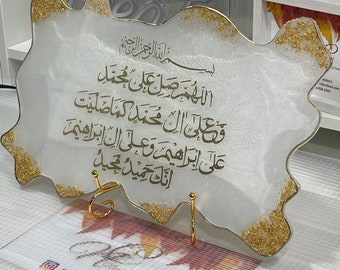 بسم الله الرحمن الرحيم
اللهم صل على محمد
وعلى آل محمد كما صليت
على ابراهيم وعلى آل ابراهيم
انك حميد مجيد